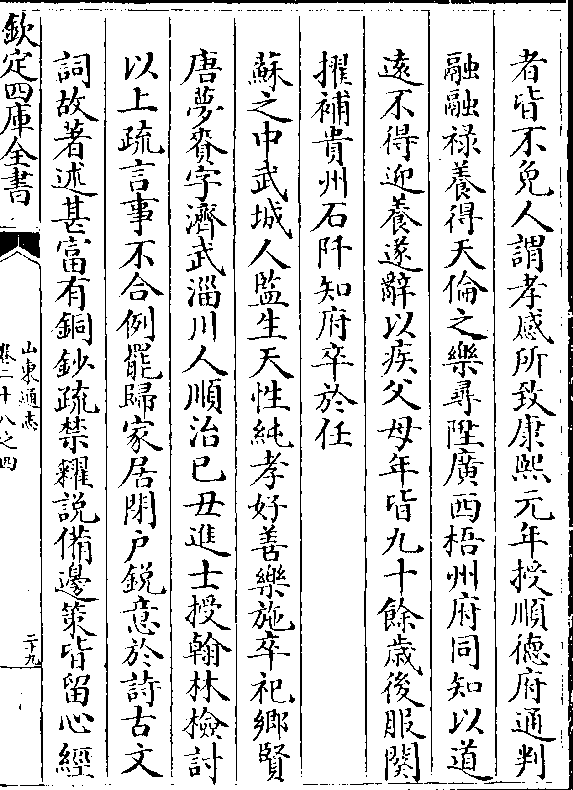 者皆不免人謂孝感所致康熙元年授順德府通判
融融祿養得天倫之樂尋陞廣西梧州府同知以道
遠不得迎養遂辭以疾父母年皆九十餘歳後服闋
擢補貴州石阡知府卒於任
蘇之中武城人監生天性純孝好善樂施卒祀鄉賢
唐夢賚字濟武淄川人順治己丑進士授翰林檢討
以上疏言事不合例罷歸家居閉户鋭意於詩古文
詞故著述甚富有銅鈔疏禁糴說備邊策皆留心經
欽定四庫全書
山東通志
卷二十八之四
二十九